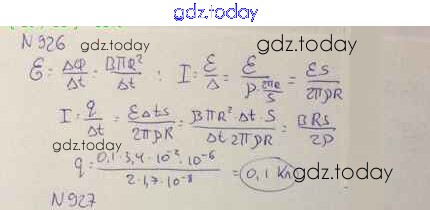 gdz.today
N 926
gdz.today
gdz.today
ℰ = ΔФ/Δt = BπR²/Δt ; I = ℰ/Δ = ℰ/(ρ 2πR/S) = ℰS/2πρR
I = q/Δt = ℰΔtS/2πρR = BπR²·Δt·S/Δt 2πρR = BRS/2ρ
q = 0,1·3,4·10⁻²·10⁻⁶/2·1,7·10⁻⁸ = 0,1 Кл
gdz.today
gdz.today
N 927